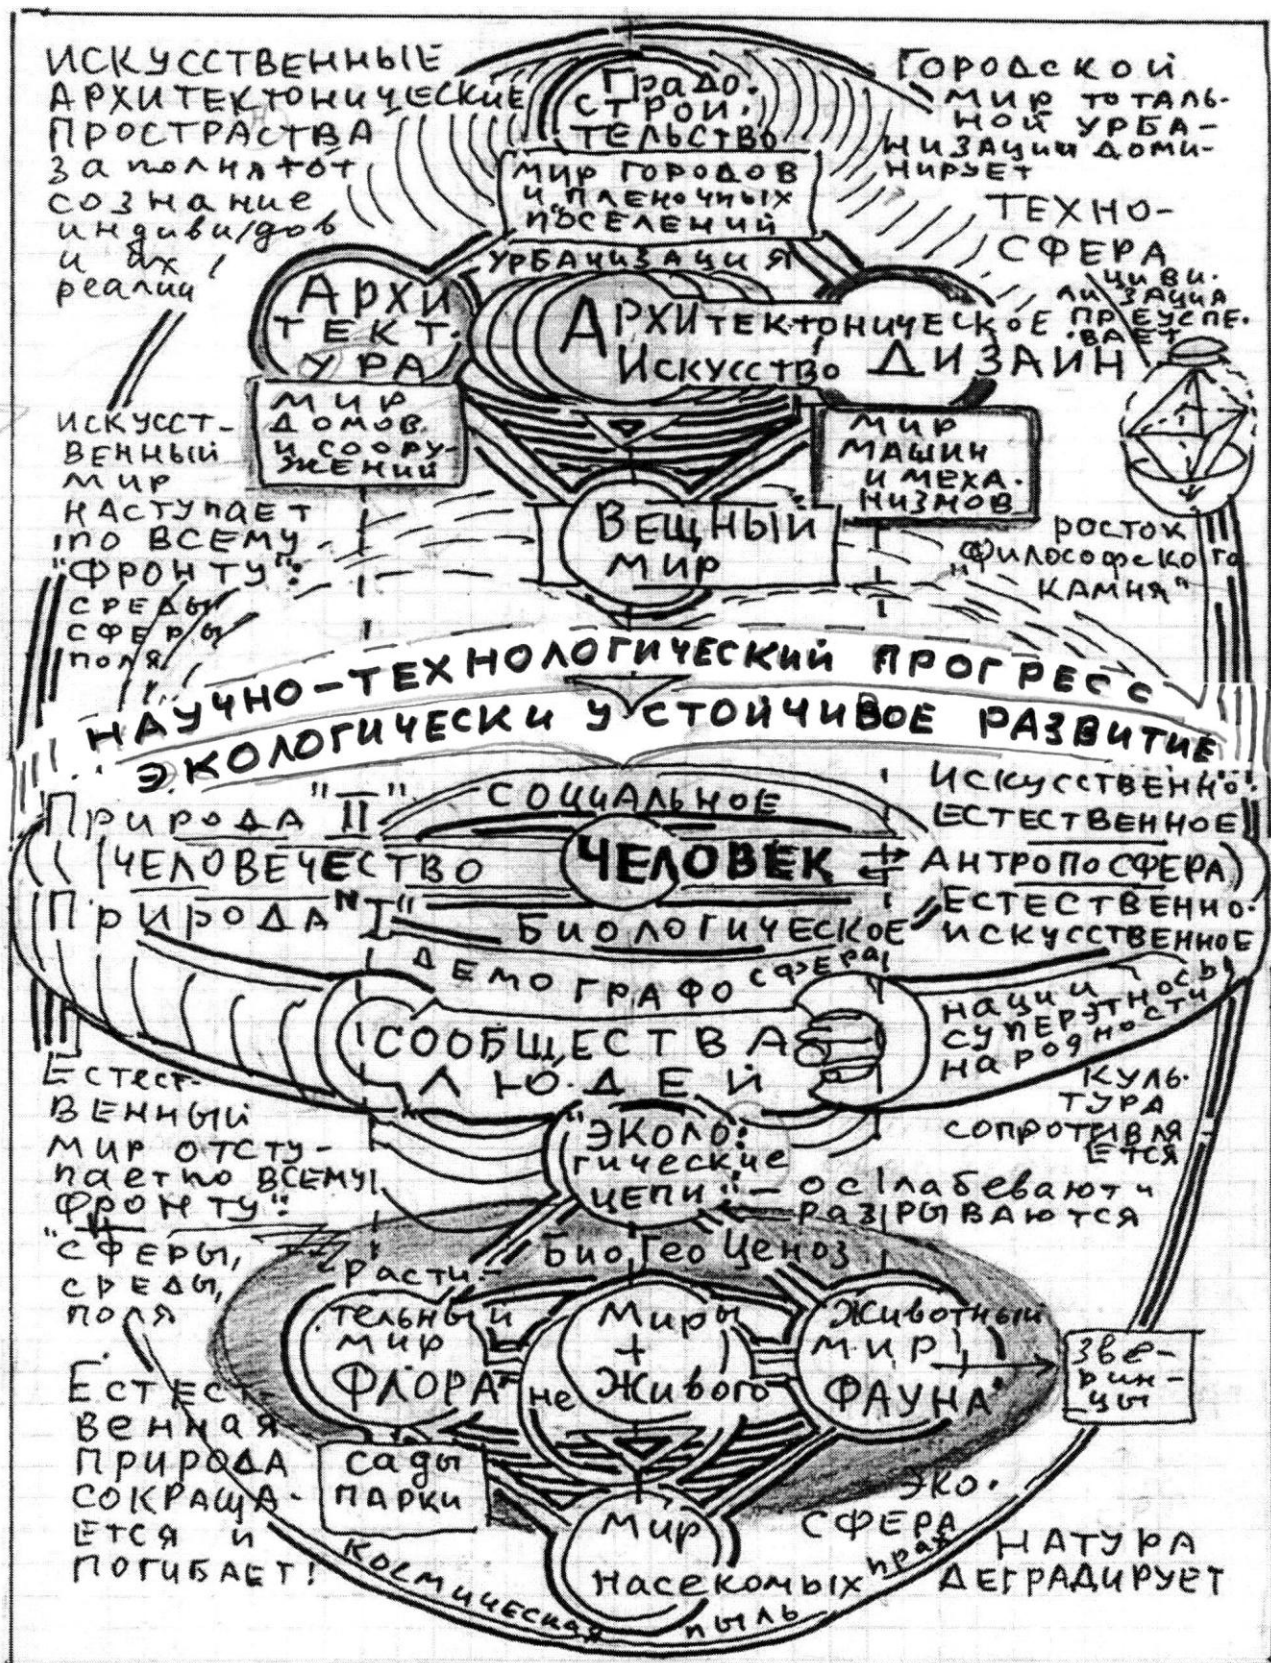 ИСКУССТВЕННЫЕ
АРХИТЕКТОНИЧЕСКИЕ
ПРОСТРАСТВА
заполняют
сознание
индивидов
и их
реалии
Градо-
строи-
тельство
МИР ГОРОДОВ
И "ПЛЕНОЧНЫХ
ПОСЕЛЕНИЙ
УРБАНИЗАЦИЯ
ГОРОДСКОЙ
МИР ТОТАЛЬ-
НОЙ УРБА-
НИЗАЦИИ ДОМИ-
НИРУЕТ
ТЕХНО-
СФЕРА
ЦИВИ-
ЛИЗАЦИЯ
ПРЕУСПЕ-
ВАЕТ
АРХИ
ТЕКТ.
УРА
АРХИТЕКТОНИЧЕСКОЕ
ИСКУССТВО
ДИЗАИН
МИР
ДОМОВ
И СООРУ-
ЖЕНИЙ
МИР
МАШИН
И МЕХА-
НИЗМОВ
ВЕЩНЫЙ
МИР
ИСКУССТ-
ВЕННЫЙ
МИР
НАСТУПАЕТ
ПО ВСЕМУ
"ФРОНТУ":
СРЕДЫ
СФЕРЫ
ПОЛЯ
РОСТОК
"Философского
КАМНЯ"
НАУЧНО-ТЕХНОЛОГИЧЕСКИЙ ПРОГРЕСС
ЭКОЛОГИЧЕСКИ УСТОЙЧИВОЕ РАЗВИТИЕ
Природа "II"
СОЦИАЛЬНОЕ
ИСКУССТВЕННО-
ЕСТЕСТВЕННОЕ
ЧЕЛОВЕЧЕСТВО
ЧЕЛОВЕК
АНТРОПОСФЕРА
Природа "I"
БИОЛОГИЧЕСКОЕ
ЕСТЕСТВЕННО-
ИСКУССТВЕННОЕ
ДЕМОГРАФОСФЕРА
СООБЩЕСТВА
ЛЮДЕЙ
НАЦИИ
СУПЕРЭТНОСЫ
НАРОДНОСТИ
КУЛЬ-
ТУРА
СОПРОТИВЛЯ
ЕТСЯ
ЕСТЕСТ-
ВЕННЫЙ
МИР ОТСТУ-
пает по ВСЕМУ
ФРОНТУ":
"СФЕРЫ,
СРЕДЫ,
ПОЛЯ
"ЭКОЛО-
гические
ЦЕПИ" — ослабевают и
РАЗРЫВАЮТСЯ
БиоГеоЦеноз
Расти-
тельный
мир
ФЛОРА"
Миры
+
не Живого
Животный
МИР
ФАУНА"
Зве-
рин-
цы
ЕСТЕСТ-
венная
ПРИРОДА
СОКРАЩА-
ЕТСЯ И
ПОГИБАЕТ!
сады
ПАРКИ
Мир
насекомых
ЭКО-
СФЕРА
НАТУРА
ДЕГРАДИРУЕТ
КОСМИЧЕСКАЯ пыль
прах